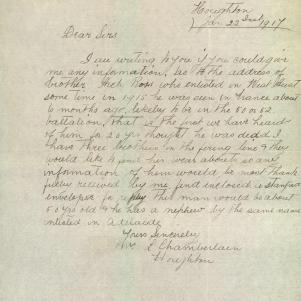 Houghton
Jan 23rd 1917
Dear Sirs
I am writing to you if you could give
me any information, as to the address of
brother Jack Ross who enlisted in West Aust
some time in 1915 he was seen in France about
6 months ago, likely to be in the 50 or 52
battalion, that is the first we have heard
of him for 20 yrs thought he was dead. I
have three brothers in the firing line &
would like to find wear about so any
information of him would be most thank
fully received by me, find inclosed a stamped
envelope for reply this man would be about
50 yrs old & he has a nephew by the same name
enlisted in Adelaide
Yours Sincerely
L Chamberlain
Houghton